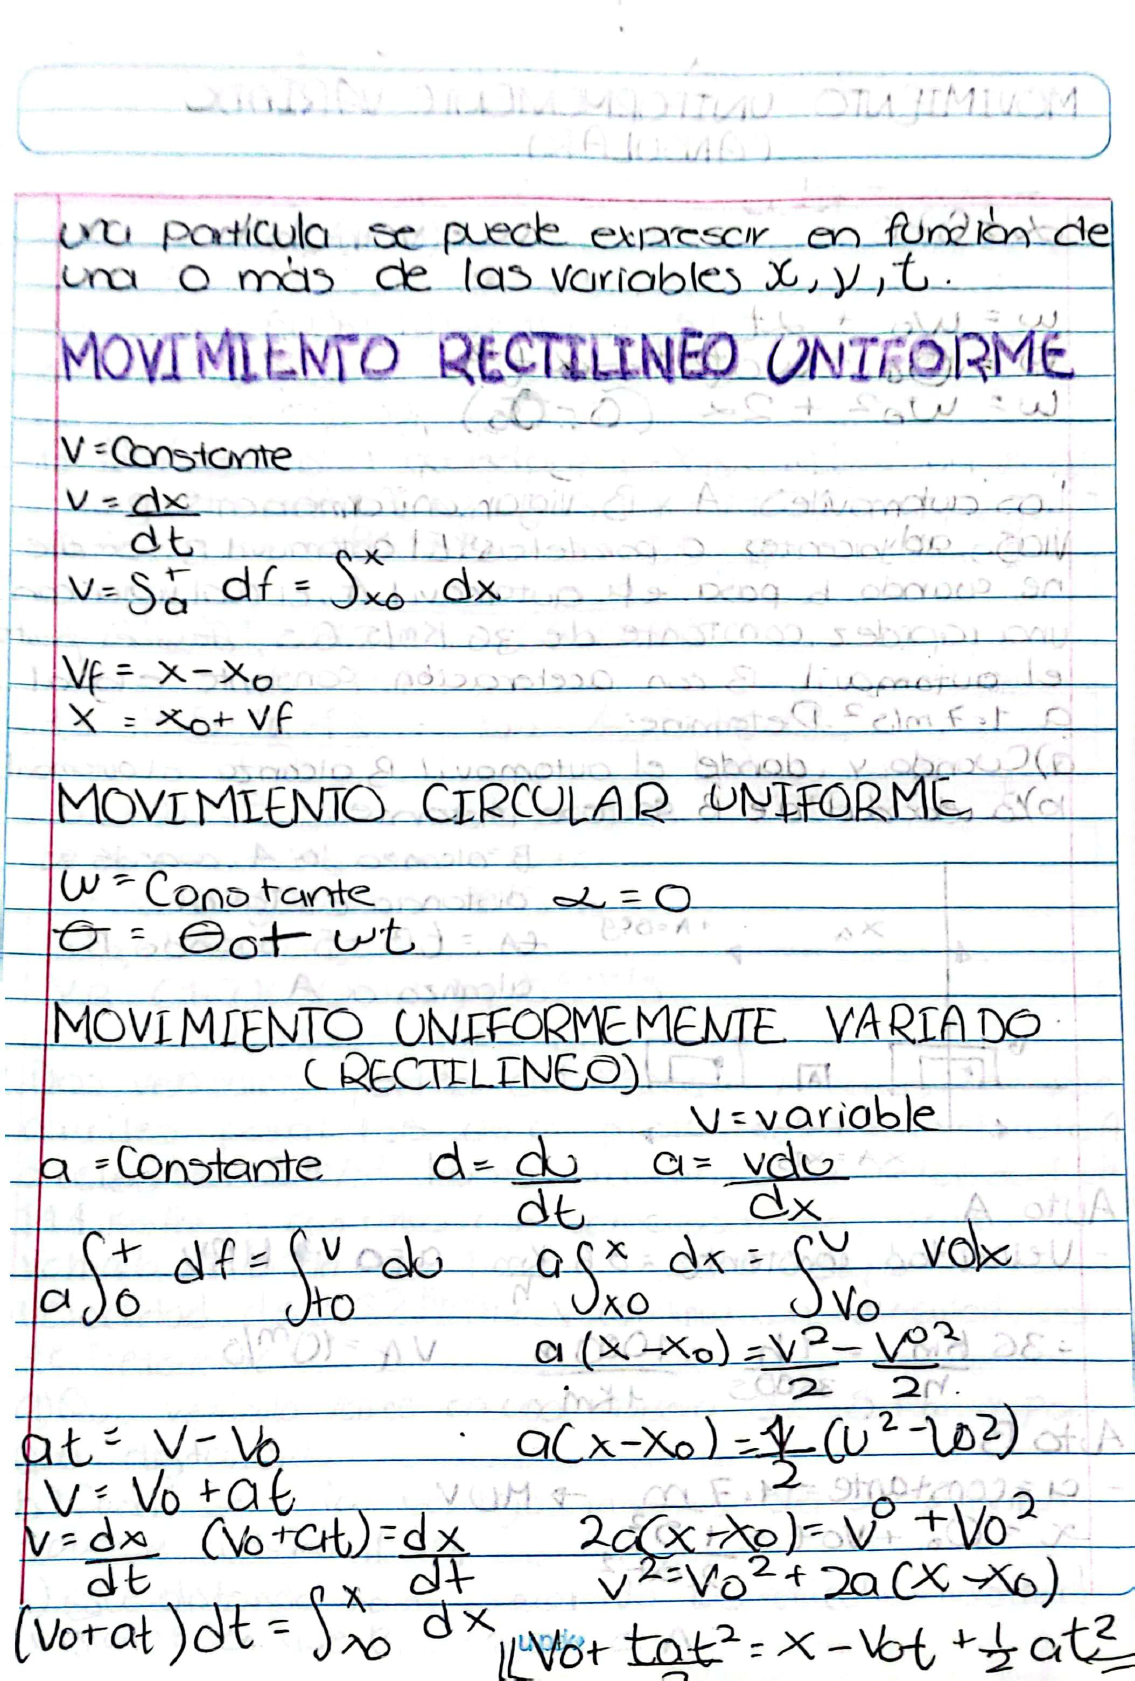 una partícula se puede expresar en función de
una o más de las variables x, v, t.
MOVIMIENTO RECTILINEO UNIFORME
V = Constante
v = dx/dt
v = ∫a^t df = ∫x0^x dx
Vf = x - x0
x = x0 + Vf
MOVIMIENTO CIRCULAR UNIFORME
ω = Constante α = 0
θ = θ0 + ωt
MOVIMIENTO UNIFORMEMENTE VARIADO
(RECTILINEO)
v = variable
a = Constante d = dv/dt a = vdv/dx
a∫0^t df = ∫t0^v dv a∫x0^x dx = ∫V0^v vdx
a(x-x0) = V²/2 - V0²/2
at = V - V0 a(x-x0) = 1/2 (v² - v0²)
V = V0 + at
v = dx/dt (V0 + at) = dx/dt 2a(x-x0) = v⁰ + V0²
v² = V0² + 2a(x-x0)
(V0 + at) dt = ∫x0^x dx V0 + tat²/2 = x - V0t + 1/2 at²